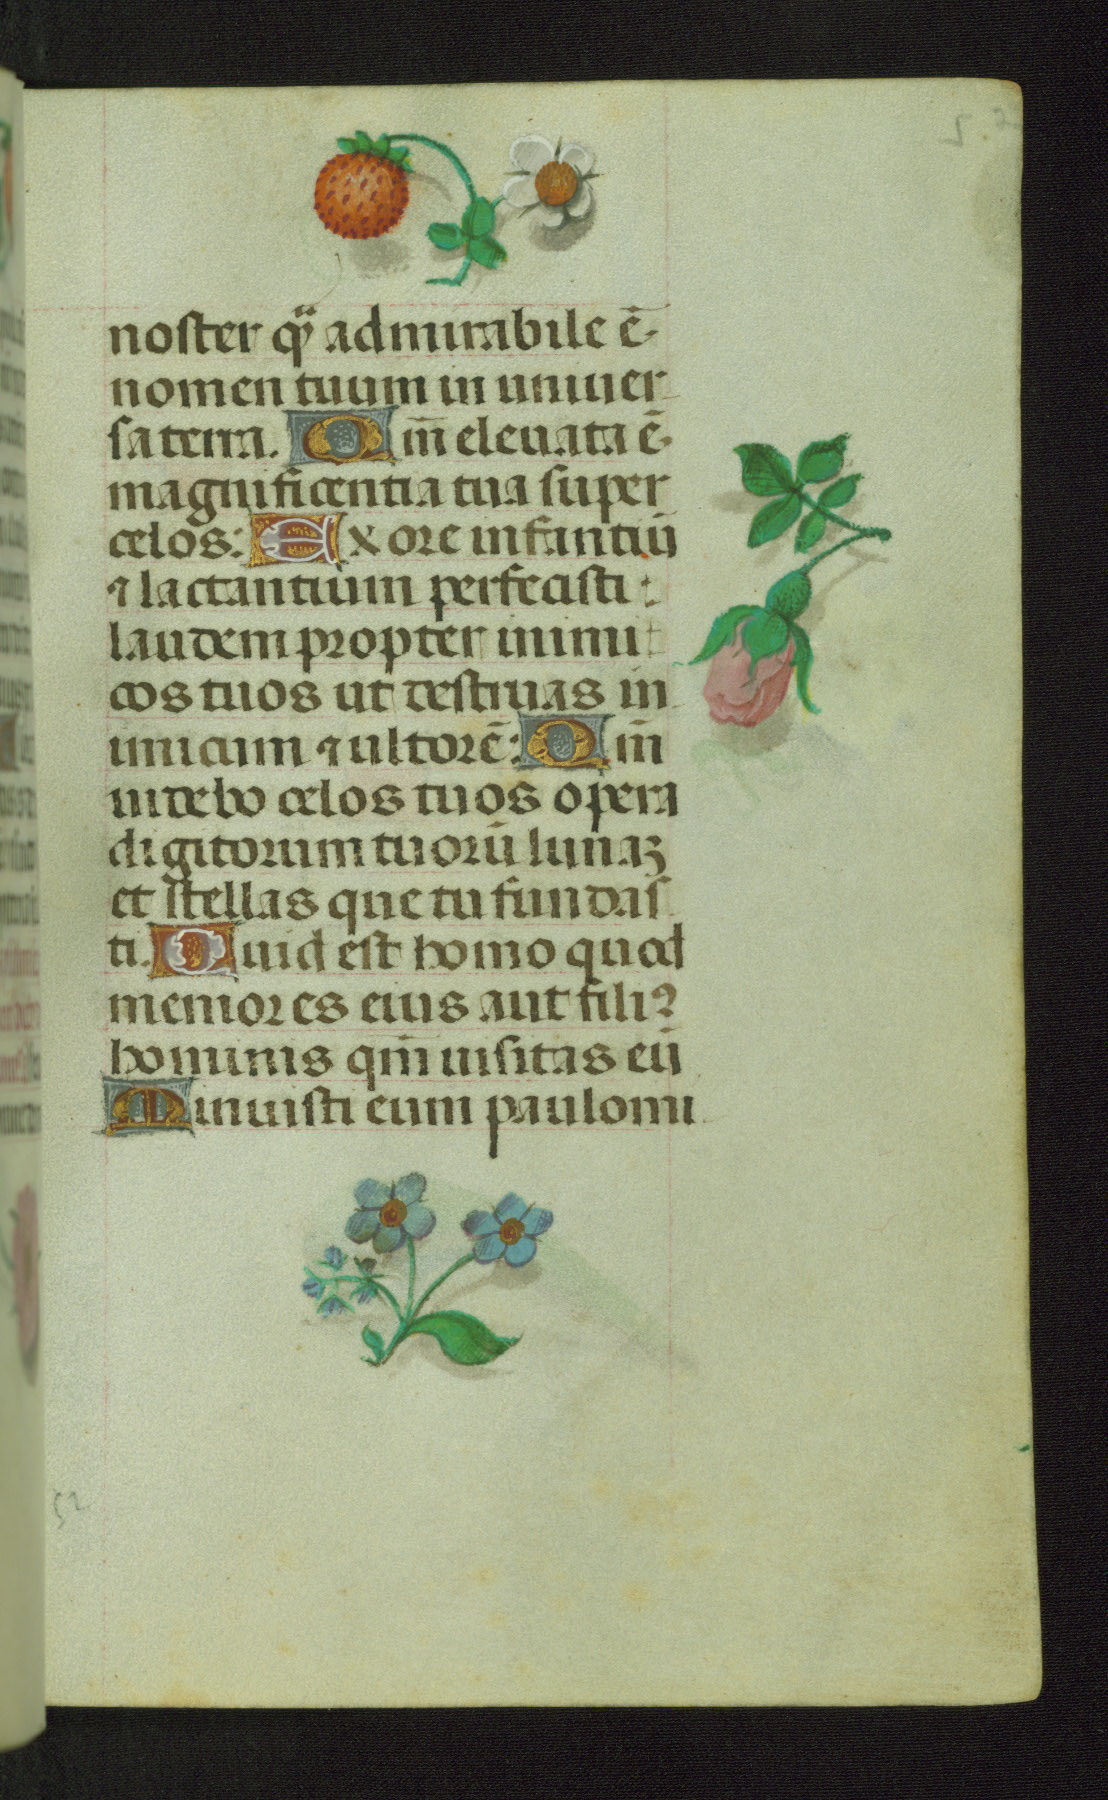 5.2
noster qͫ admirabile ē
nomen tuum in uniuer
sa terra. Qm̄ eleuata ē
magnificentia tua super
celos: Ex ore infantiū
⁊ lactantium perfecisti
laudem propter inimi
cos tuos ut destruas in
imicum ⁊ ultorē: Qm̄
uidebo celos tuos opera
digitorum tuorū lunaꝫ
et stellas que tu fundas
ti. Quid est homo quod
memor es eius aut fili9
hominis qm̄ uisitas eū
Minuisti eum paulomi
52